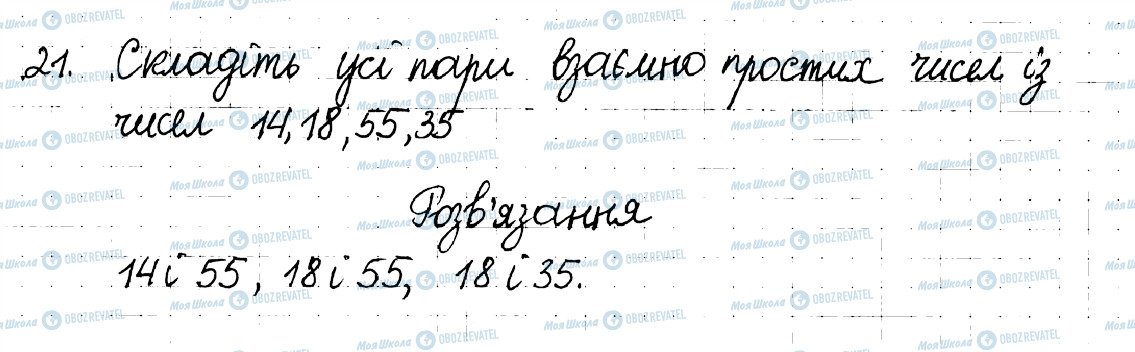 21. Складіть усі пари взаємно простих чисел із
чисел 14, 18, 55, 35
Розв'язання
14 і 55, 18 і 55, 18 і 35.